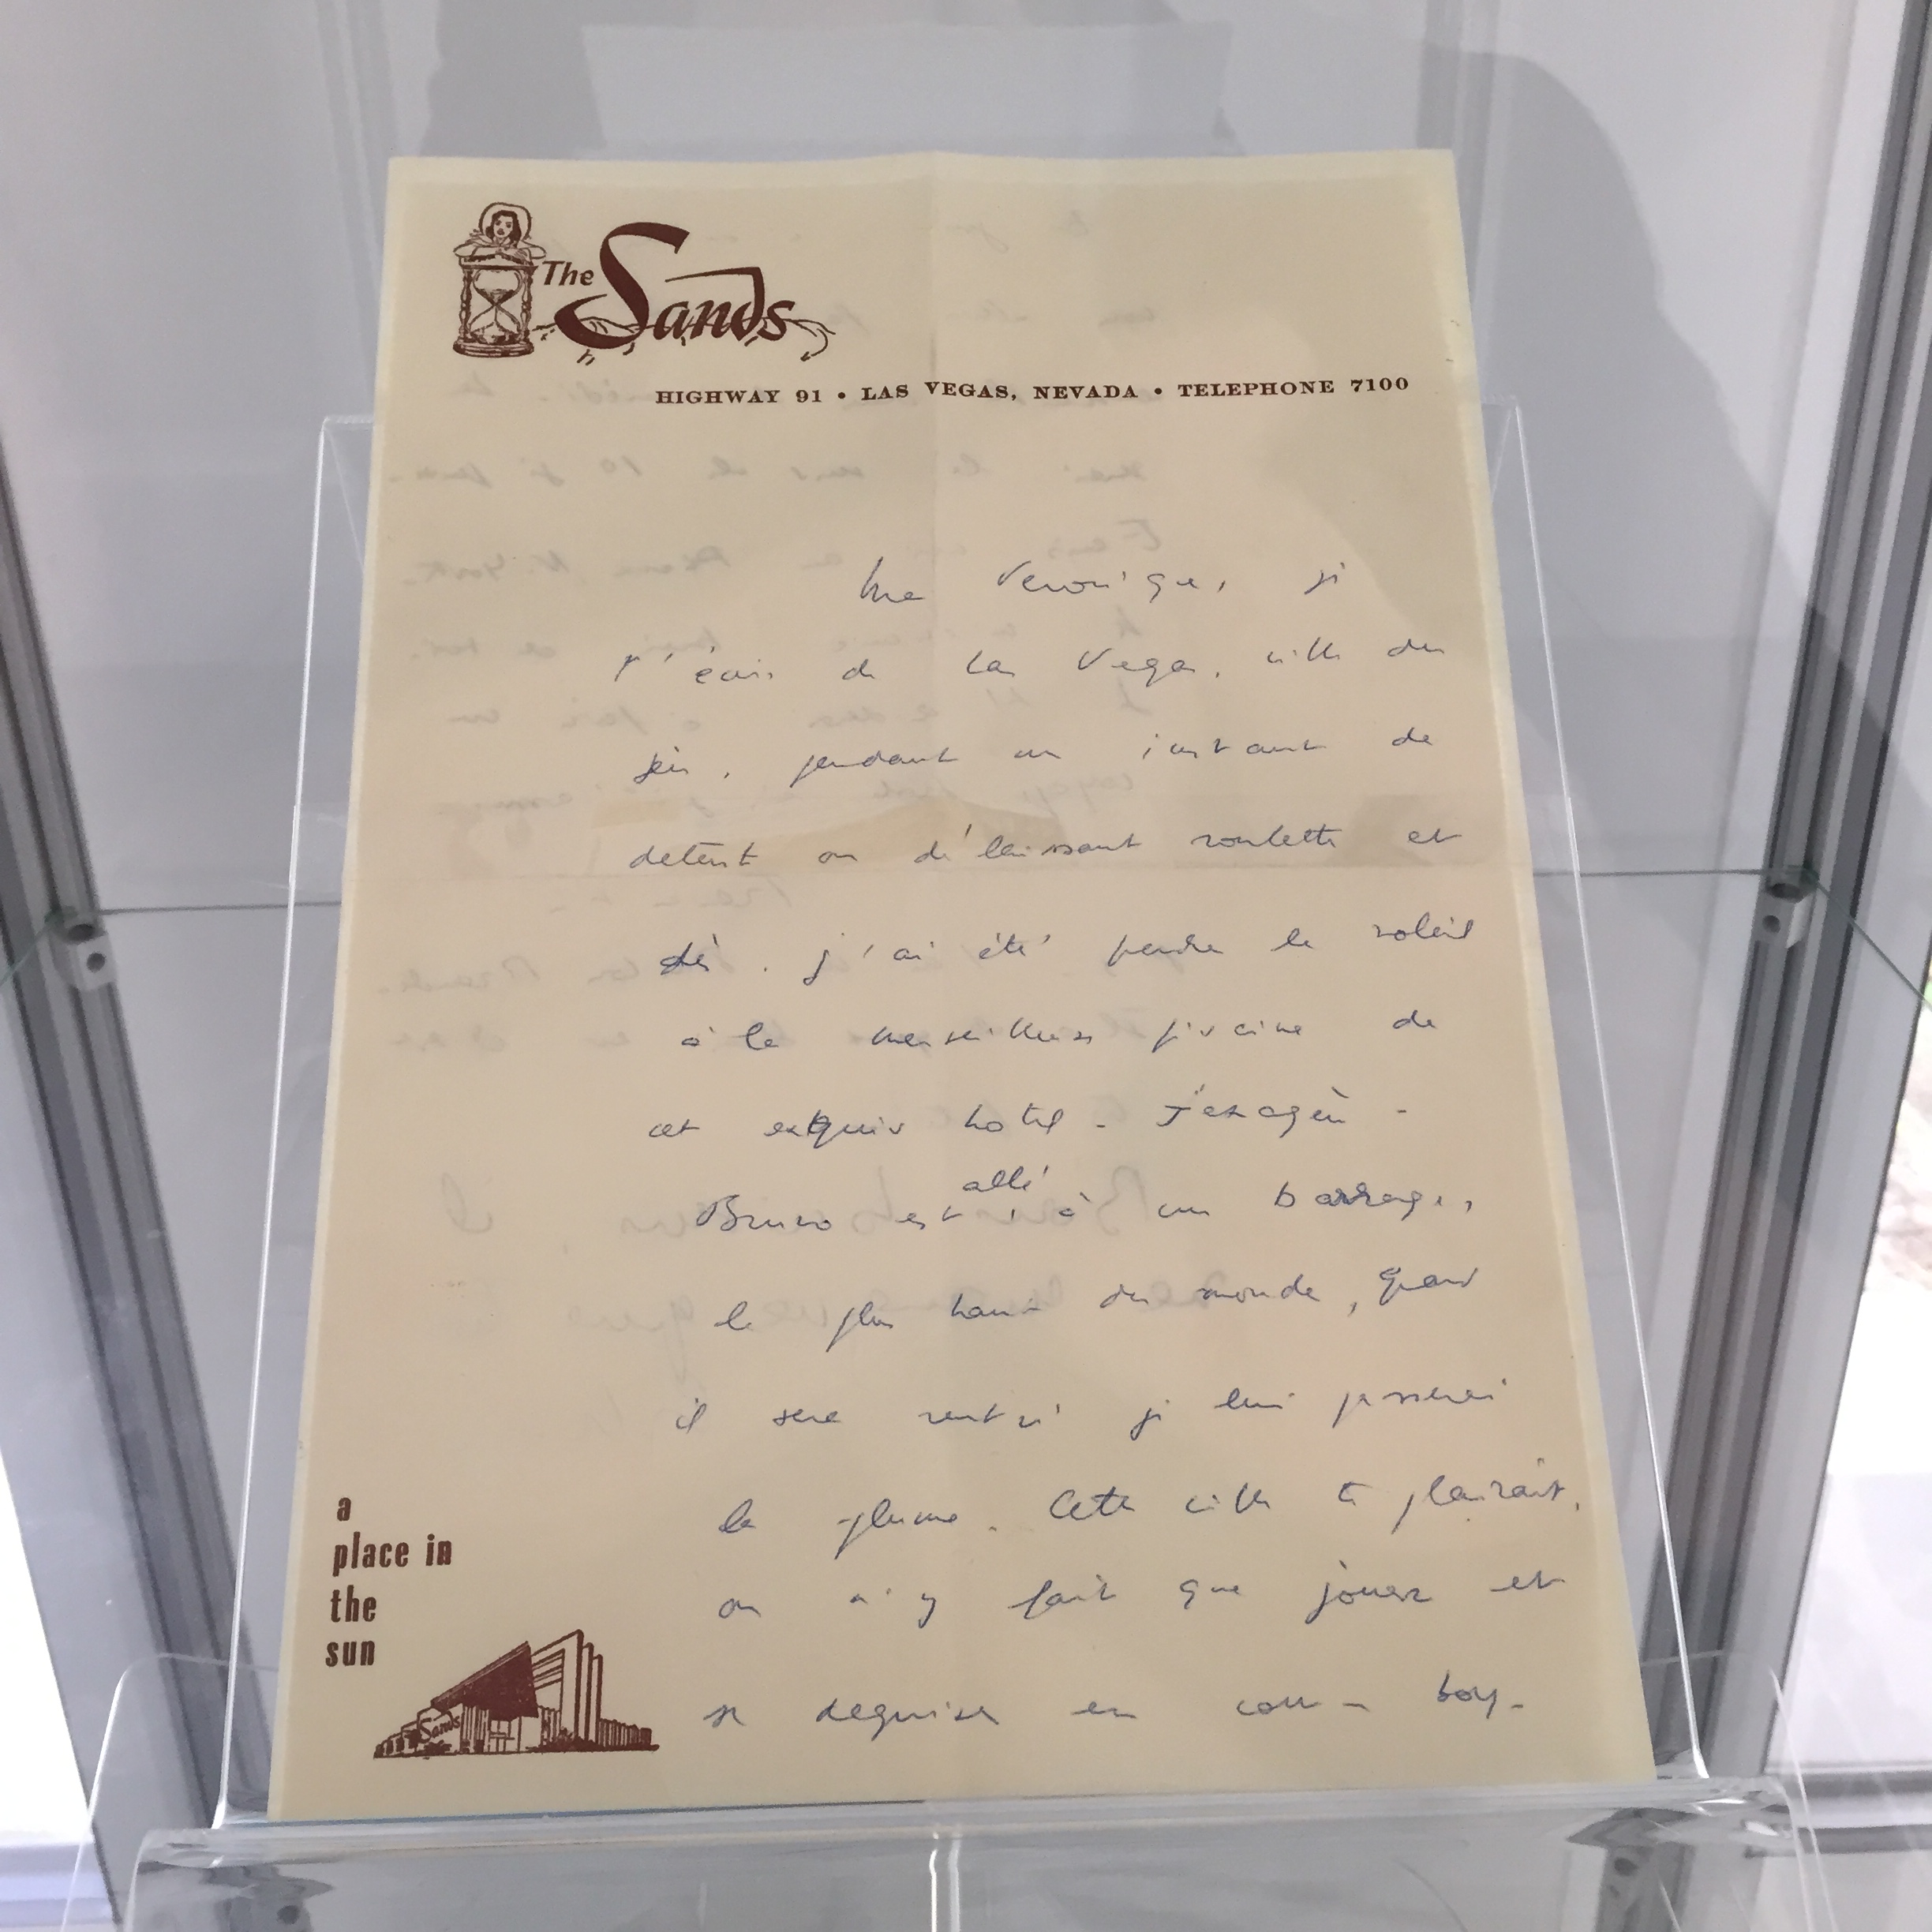 The Sands
HIGHWAY 91 • LAS VEGAS, NEVADA • TELEPHONE 7100
Ma Veronique, je
t'écris de Las Vegas, ville du
jeu, pendant un instant de
detente on délaissant roulette et
dés. j'ai été prendre le soleil
à la merveilleuse piscine de
cet exquis hotel. J'exagère -
allé
Bruno est à un barrage,
le plus haut du monde, quand
il sera rentré je lui passerai
la plume. Cette ville te plairait,
on n'y fait que jouer et
se deguiser en cow-boy.
a
place in
the
sun
Sands